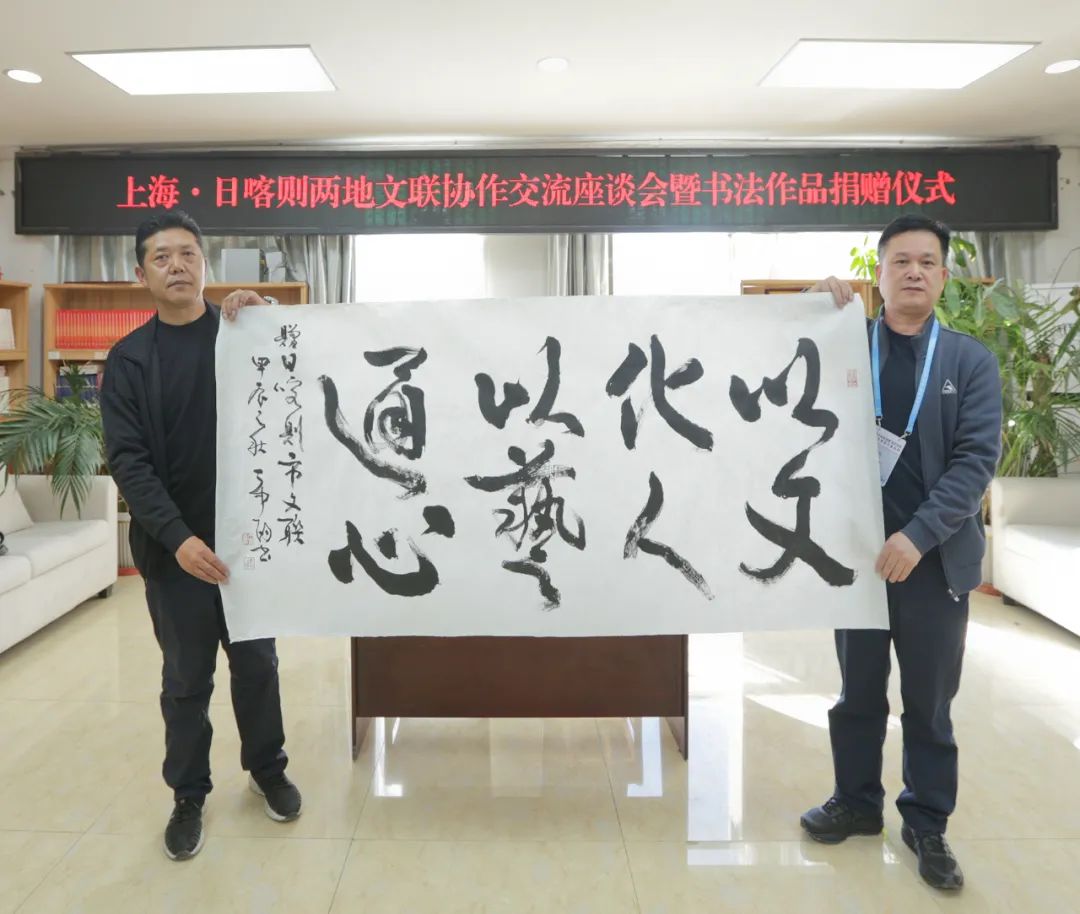 上海·日喀则两地文联协作交流座谈会暨书法作品捐赠仪式
以文
化人
以藝
通心
贈日喀则市文联
甲辰之秋